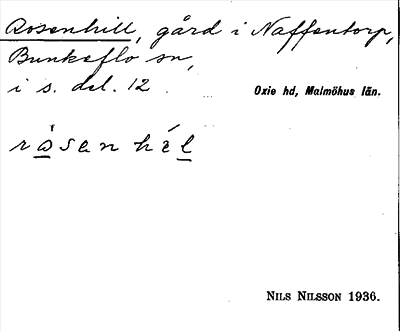 Rosenhill, gård i Naffentorp,
Bunkeflo sn,
i s. del. 12.
Oxie hd, Malmöhus län.
rå̀sanhél
NILS NILSSON 1936.